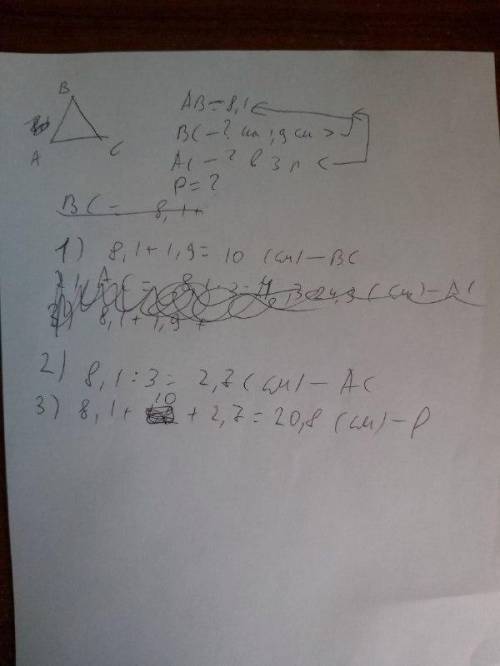 B
A
C
AB = 8,1
BC - ? на 1,9 см >
AC - ? в 3 р <
P = ?
BC = 8,1 +
1) 8,1 + 1,9 = 10 (см) - BC
8,1 + 1,9 +
2) 8,1 : 3 = 2,7 (см) - AC
3) 8,1 + 10 + 2,7 = 20,8 (см) - P